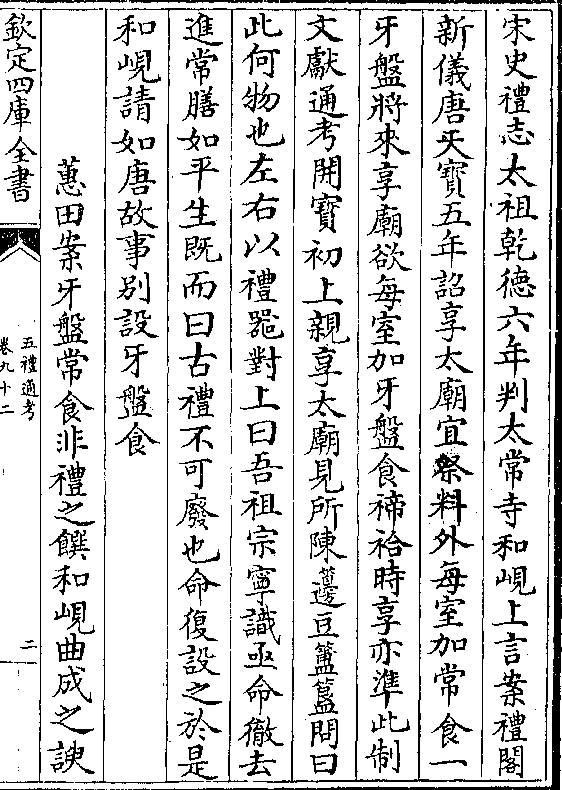 宋史禮志太祖乾德六年判太常寺和峴上言案禮閣
新儀唐天寶五年詔享太廟宜祭料外每室加常食一
牙盤將來享廟欲每室加牙盤食禘祫時享亦準此制
文獻通考開寶初上親享太廟見所陳籩豆簠簋問曰
此何物也左右以禮器對上曰吾祖宗寧識亟命徹去
進常膳如平生既而曰古禮不可廢也命復設之於是
和峴請如唐故事別設牙盤食
蕙田案牙盤常食非禮之饌和峴曲成之諛
欽定四庫全書
五禮通考
卷九十二
二